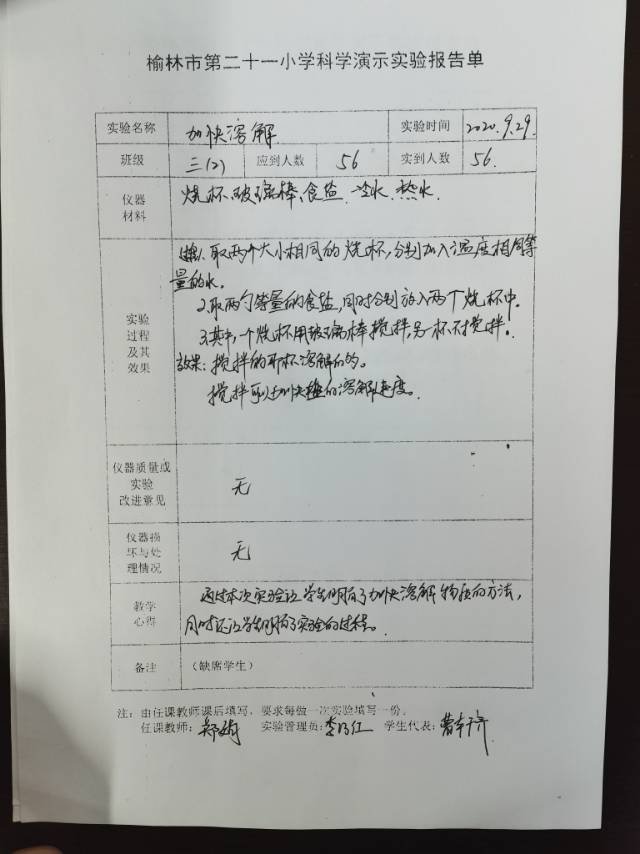 榆林市第二十一小学科学演示实验报告单
实验名称 加快溶解 实验时间 2020.9.29.
班级 三(2) 应到人数 56 实到人数 56.
仪器材料 烧杯、玻璃棒、食盐、冷水、热水.
实验过程及其效果
1.取两个大小相同的烧杯,分别加入温度相同等
量的水。
2.取两勺等量的食盐,同时分别放入两个烧杯中.
3.其中,一个烧杯用玻璃棒搅拌,另一杯不搅拌。
效果:搅拌的那杯溶解的。
搅拌可以加快的溶解速度.
仪器质量或实验改进意见 无
仪器损坏与处理情况 无
教学心得
通过本次实验让学生们明白了加快溶解物质的方法,
同时还让学生们明白了实验的过程。
备注 (缺席学生)
注:由任课教师课后填写,要求每做一次实验填写一份。
任课教师: 实验管理员: 学生代表: